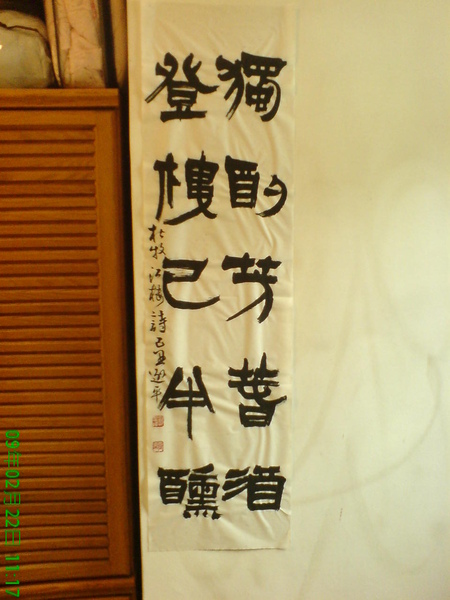 獨酌芳萅酒
登樓已半醺
杜牧江樓詩己丑
09年02月22日 11:17